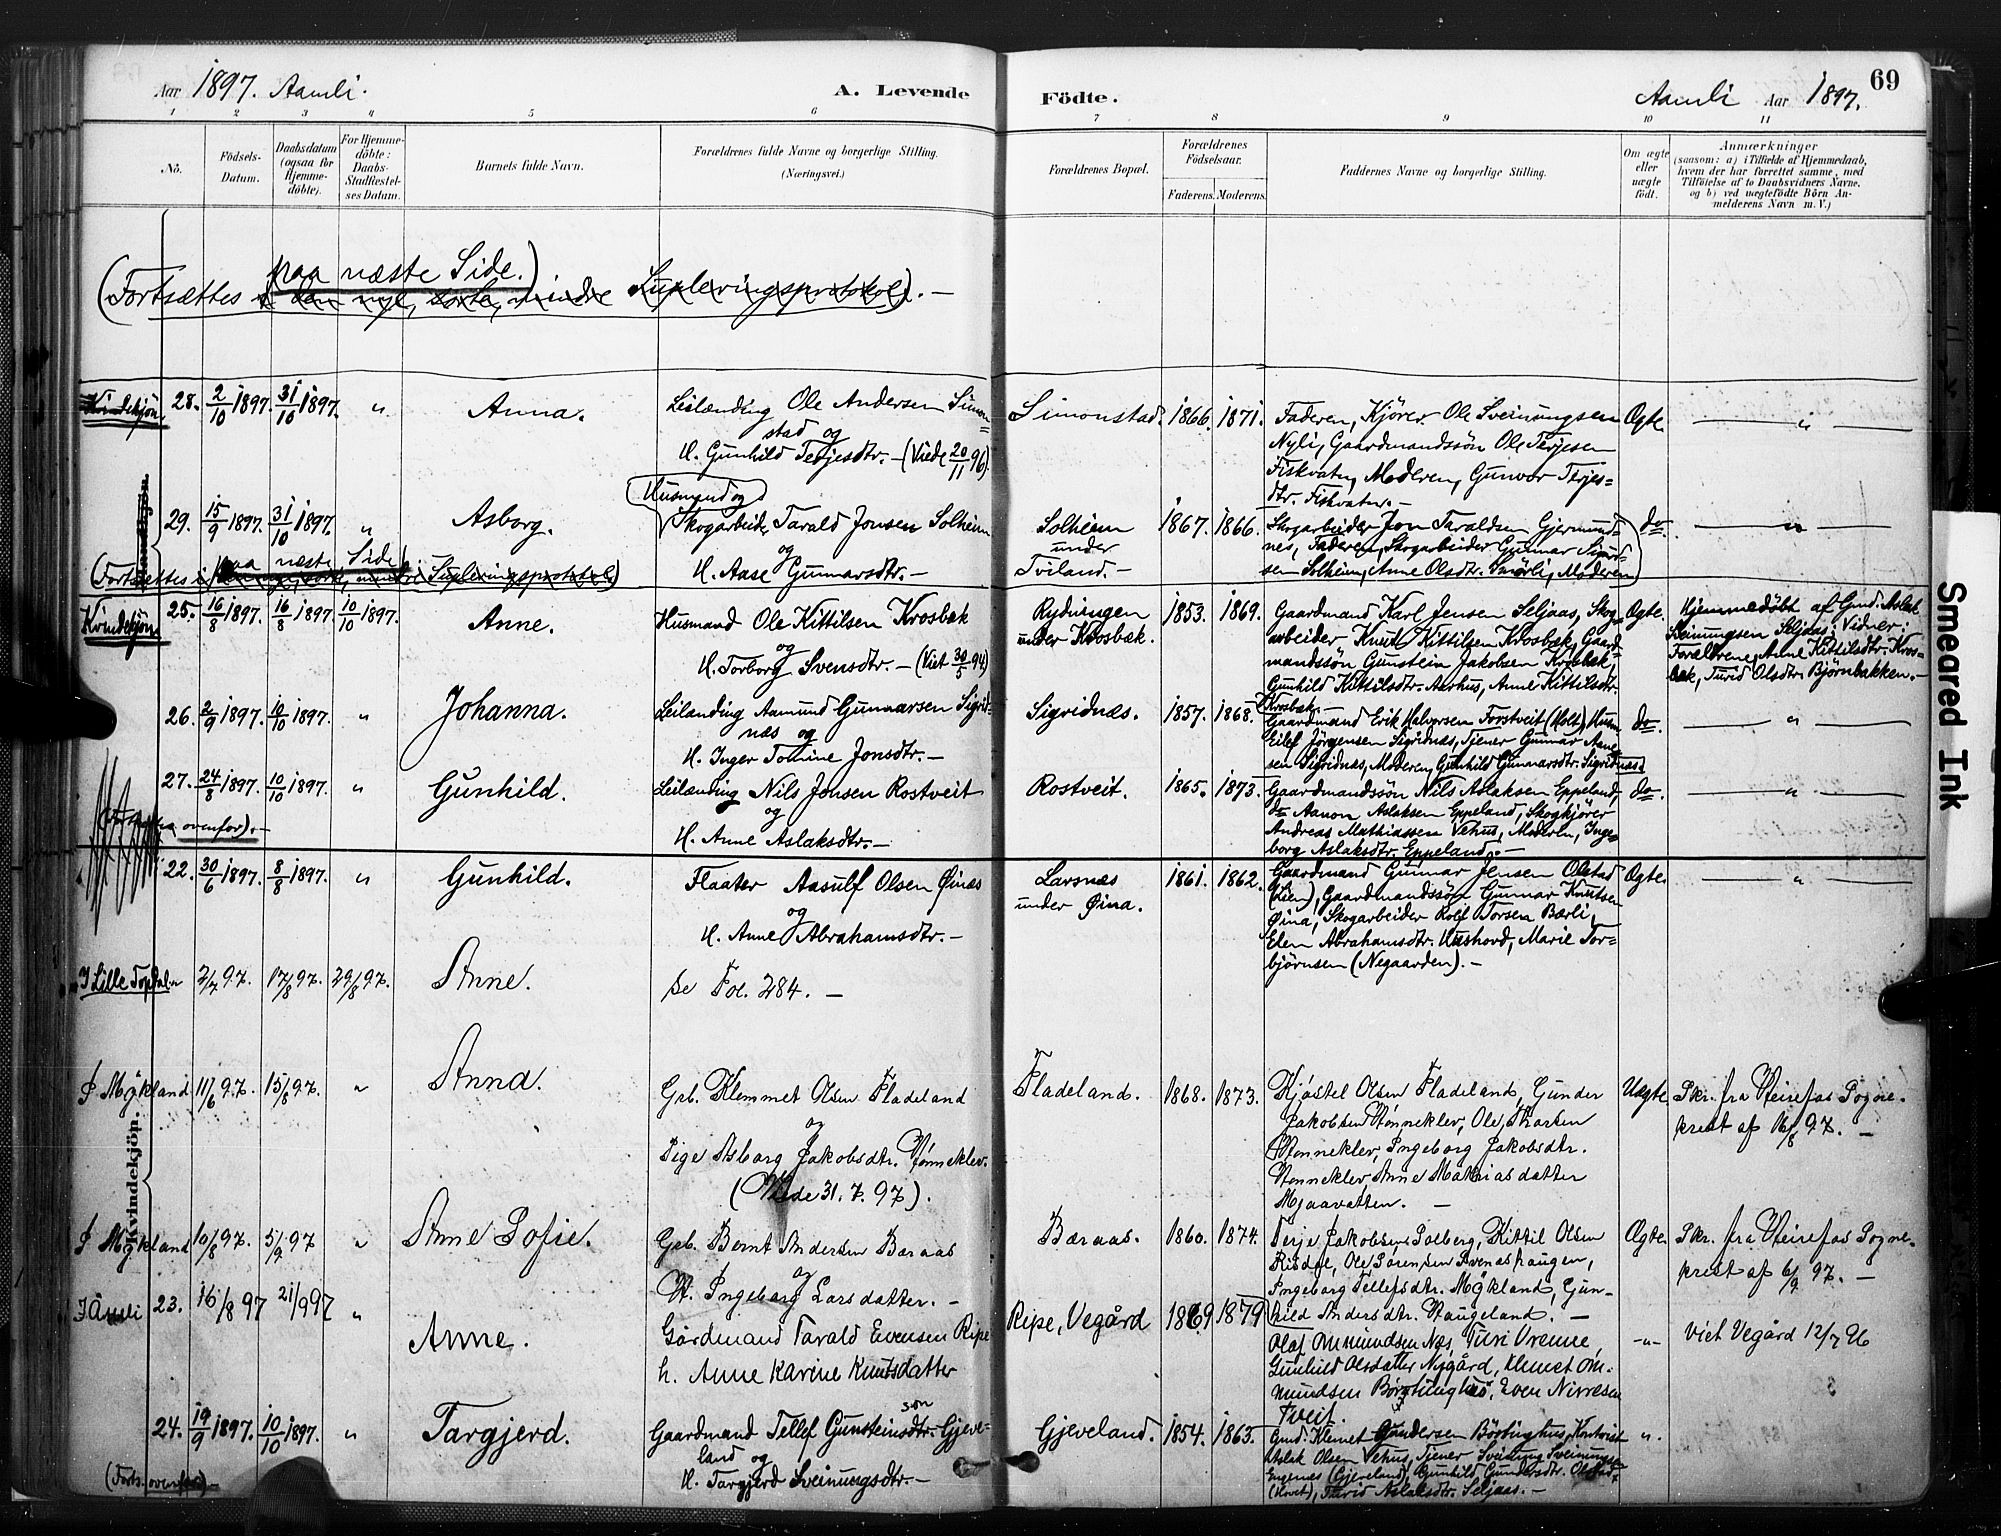 Aar 1897. Aamli.
A. Levende Födte.
Aamli Aar 1897.
69
1 2 3 4 5 6 7 8 9 10 11
No.
Födsels-Datum.
Daabsdatum (ogsaa for Hjemmedöbte).
For Hjemmedöbte: Daabs-Stadfæstelses Datum.
Barnets fulde Navn.
Forældrenes fulde Navne og borgerlige Stilling. (Næringsvei.)
Forældrenes Bopæl.
Forældrenes Födselsaar.
Faderens. Moderens.
Faddernes Navne og borgerlige Stilling.
Om ægte eller uægte född.
Anmærkninger
(saasom: a) i Tilfælde af Hjemmedaab,
hvem der har forrettet samme, med
Tilföielse af to Daabsvidners Navne,
og b) ved uægtefödte Börn An-
melderens Navn m. V.)
paa næste Side.)
(Fortsættes i den nye, sorte, mindre Supleringsprotokol). —
Kvindekjön
28. 2/10 1897. 31/10 1897. „ Anna.
Leilænding Ole Andersen Simon=
stad og
H. Gunhild Terjesdtr. — (Viede 20/11 96).
Simonstad. 1866. 1871.
Faderen, Kjörer Ole Sveinungsen
Nyli, Gaardmandssön Ole Terjesen
Fiskvatn, Moderen, Gunvor Terjes=
dtr. Fiskvatn. —
Ægte. — „ —
29. 15/9 1897. 31/10 1897. „ Asborg.
Husmand og
Skogarbeid. Tarald Jonsen Solheim
og
H. Aase Gunnarsdtr. —
Solheim
under
Tviland. —
1867. 1866.
Skogarbeider Jon Taraldsen Gjermund=
nes, Faderen, Skogarbeider Gunnar Sigurd=
sen Solheim, Anne Olsdtr. Smörli, Moderen
do. — „ —
(Fortsættes paa næste Side
Kvindekjön
25. 16/8 1897. 16/8 1897. 10/10 1897. Anne.
Husmand Ole Kittilsen Krosbæk
og
H. Torborg Svensdtr. — (Viet 30/5 94)
Rydningen
under Krosbæk.
1853. 1869.
Gaardmand Karl Jensen Seljaas, Skog=
arbeider Knud Kittilsen Krosbæk, Gaard=
mandssön Gunstein Jakobsen Krosbæk,
Gunhild Kittilsdtr. Aarhus, Anne Kittilsdtr.
Krosbæk. —
Ægte.
Hjemmedöbt af Gmd. Aslak
Sveinungsen Seljaas; Vidner:
Forældrene, Anne Kittilsdtr. Kros=
bæk, Turid Olsdtr. Björnbakken. —
26. 2/9 1897. 10/10 1897. „ Johanna.
Leilænding Aamund Gunnarsen Sigrid=
næs og
H. Inger Tomine Jonsdtr. —
Sigridnæs. 1857. 1868.
Gaardmand Erik Halvorsen Forstveit (Holt), Husm.
Eilef Jörgensen Sigridnæs, Tjener Gunnar Aane=
sen Sigridnæs, Moderen, Gunhild Gunnarsdtr. Sigridnæs.
do. — „ —
27. 24/8 1897. 10/10 1897. „ Gunhild.
Leilænding Nils Jonsen Rostveit
og
H. Anne Aslaksdtr. —
Rostveit. 1865. 1873.
Gaardmandssön Nils Aslaksen Eppeland,
do Aanon Aslaksen Eppeland, Skogkjörer
Andreas Mathiassen Vehus, Moderen, Inge=
borg Aslaksdtr. Eppeland. —
do. — „ —
ovenfor). —
22. 30/6 1897. 8/8 1897. „ Gunhild.
Flaater Aasulf Olsen Øinæs
og
H. Anne Abrahamsdtr. —
Larsnæs
under Øina.
1861. 1862.
Gaardmand Gunnar Jensen Olstad
(Lien), Gaardmandssön Gunnar Knutsen
Øina, Skogarbeider Rolf Torsen Bærli,
Elen Abrahamsdtr. Hushovd, Marie Tor=
björnsen (Negaarden). —
Ægte. — „ —
I Lille Topdal
2/7 97. 17/8 97. 29/8 97. Anne.
se Fol. 284. —
I Mykland 11/6 97. 15/8 97. „ Anna.
Gsb. Klemmet Olsen Fladeland
og
Pige Asborg Jakobsdtr. Vønneklev.
(Viede 31.7.97).
Fladeland. 1868. 1873.
Kjøstel Olsen Fladeland, Gunder
Jakobsen Vønneklev, Ole Tharsen
Vønneklev, Ingeborg Jakobsdtr.
Vønneklev, Anne Mathiasdatter
Mjaavatten. —
Uægte.
Skr. fra Heirefos Sogne-
prest af 16/8 97. —
Kvindekjön.
I Mykland 10/8 97. 5/9 97 „ Anne Sofie.
Gsb. Bernt Andersen Baraas
og
H. Ingeborg Larsdatter. —
Bæraas. 1860. 1874.
Terje Jakobsen Solberg, Kittil Olsen
Risdal, Ole Sørensen Svenashaugen,
Ingeborg Tellefsdtr. Mykland, Gun-
hild Andersdtr. Haugeland. —
Ægte.
Skr. fra Heirefos Sogne-
prest af 6/9 97. —
I Åmli 23. 16/8 97 21/9 97 „ Anne.
Gårdmand Tarald Evensen Ripe
h. Anne Karine Knutsdatter
Ripe, Vegård 1869 1879
Olaf Ommundsen Næs, Turi Vrenne,
Gunhild Olsdatter Nygård, Klemet Om-
mundsen Børstinghus, Even Nirresen
Tveit.
-„-
Viet Vegård 12/7 96
24. 19/9 1897. 10/10 1897. „ Targjerd.
Gaardmand Tellef Gunsteinsdtr. sön Gjeve=
land og
H. Targjerd Sveinungsdtr. —
Gjeveland. 1854. 1863.
Gmd. Klemet Gundersen Börstinghus, Kontorist
Aslak Olsen Vehus, Tjener Sveinung Sveinungsen
Engenes (Gjeveland), Gunhild Gundersdtr. Olstad
(Hovet), Turid Aslaksdtr. Seljaas. —
„.
(Forts. ovenfor) —
Smeared Ink